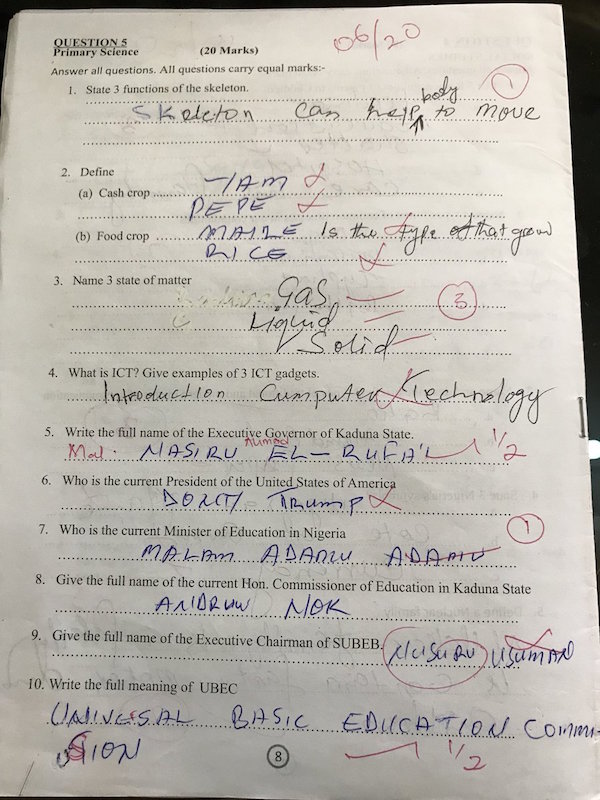 QUESTION 5
Primary Science (20 Marks)
06/20
Answer all questions. All questions carry equal marks:-
1. State 3 functions of the skeleton.
1
body
Skeleton can help to move
2. Define
(a) Cash crop YAM
PEPE
(b) Food crop MAIZE is the type of that grow
RICE
3. Name 3 state of matter
Gas
Liquid
Solid
3
4. What is ICT? Give examples of 3 ICT gadgets.
Introduction Cumputer Technology
5. Write the full name of the Executive Governor of Kaduna State.
Mal. NASIRU Ahmed EL-RUFA'I 1/2
6. Who is the current President of the United States of America
DONTY TRUMP
7. Who is the current Minister of Education in Nigeria
1
MALAM ADAMU ADAMU
8. Give the full name of the current Hon. Commissioner of Education in Kaduna State
ANDRUW NOK
9. Give the full name of the Executive Chairman of SUBEB.
NUSURU USUMAN
10. Write the full meaning of UBEC
UNIVESAL BASIC EDUCATION COMMI-
SION 1/2
8